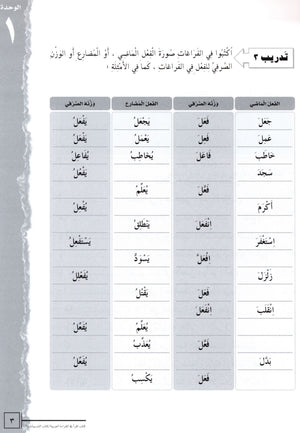 الوحدة
١
تدريب ٣
اُكْتُبُوا فِي الفَرَاغَاتِ صُورَةَ الْفِعْلِ الْمَاضِي ، أَوْ الْمُضَارِعِ أَوْ الوَزْنِ
الصَّرْفِيِّ لِلْفِعْلِ فِي الفَرَاغَاتِ ، كَمَا فِي الأَمْثِلَةِ :
الفعل الماضي وزنه الصرفي الفعل المضارع وزنه الصرفي
جَعَلَ فَعَلَ يَجْعَلُ يَفْعَلُ
عَمِلَ فَعِلَ يَعْمَلُ يَفْعَلُ
خَاطَبَ فَاعَلَ يُخَاطِبُ يُفَاعِلُ
سَجَدَ يَفْعُلُ
فَعَّلَ يُعَلِّمُ
أَكْرَمَ يُفْعِلُ
اِنْفَعَلَ يَنْطَلِقُ
اِسْتَغْفَرَ يَسْتَفْعِلُ
اِفْعَلَّ يَسْوَدُّ
زَلْزَلَ يُفَعْلِلُ
فَعَلَ يَقْتُلُ
اِنْقَلَبَ اِنْفَعَلَ
يُعَلِّمُ يُفَعِّلُ
فَعَّلَ يُعَذِّبُ
بَدَّلَ يُفَعِّلُ
فَعَلَ يَكْسِبُ
٣